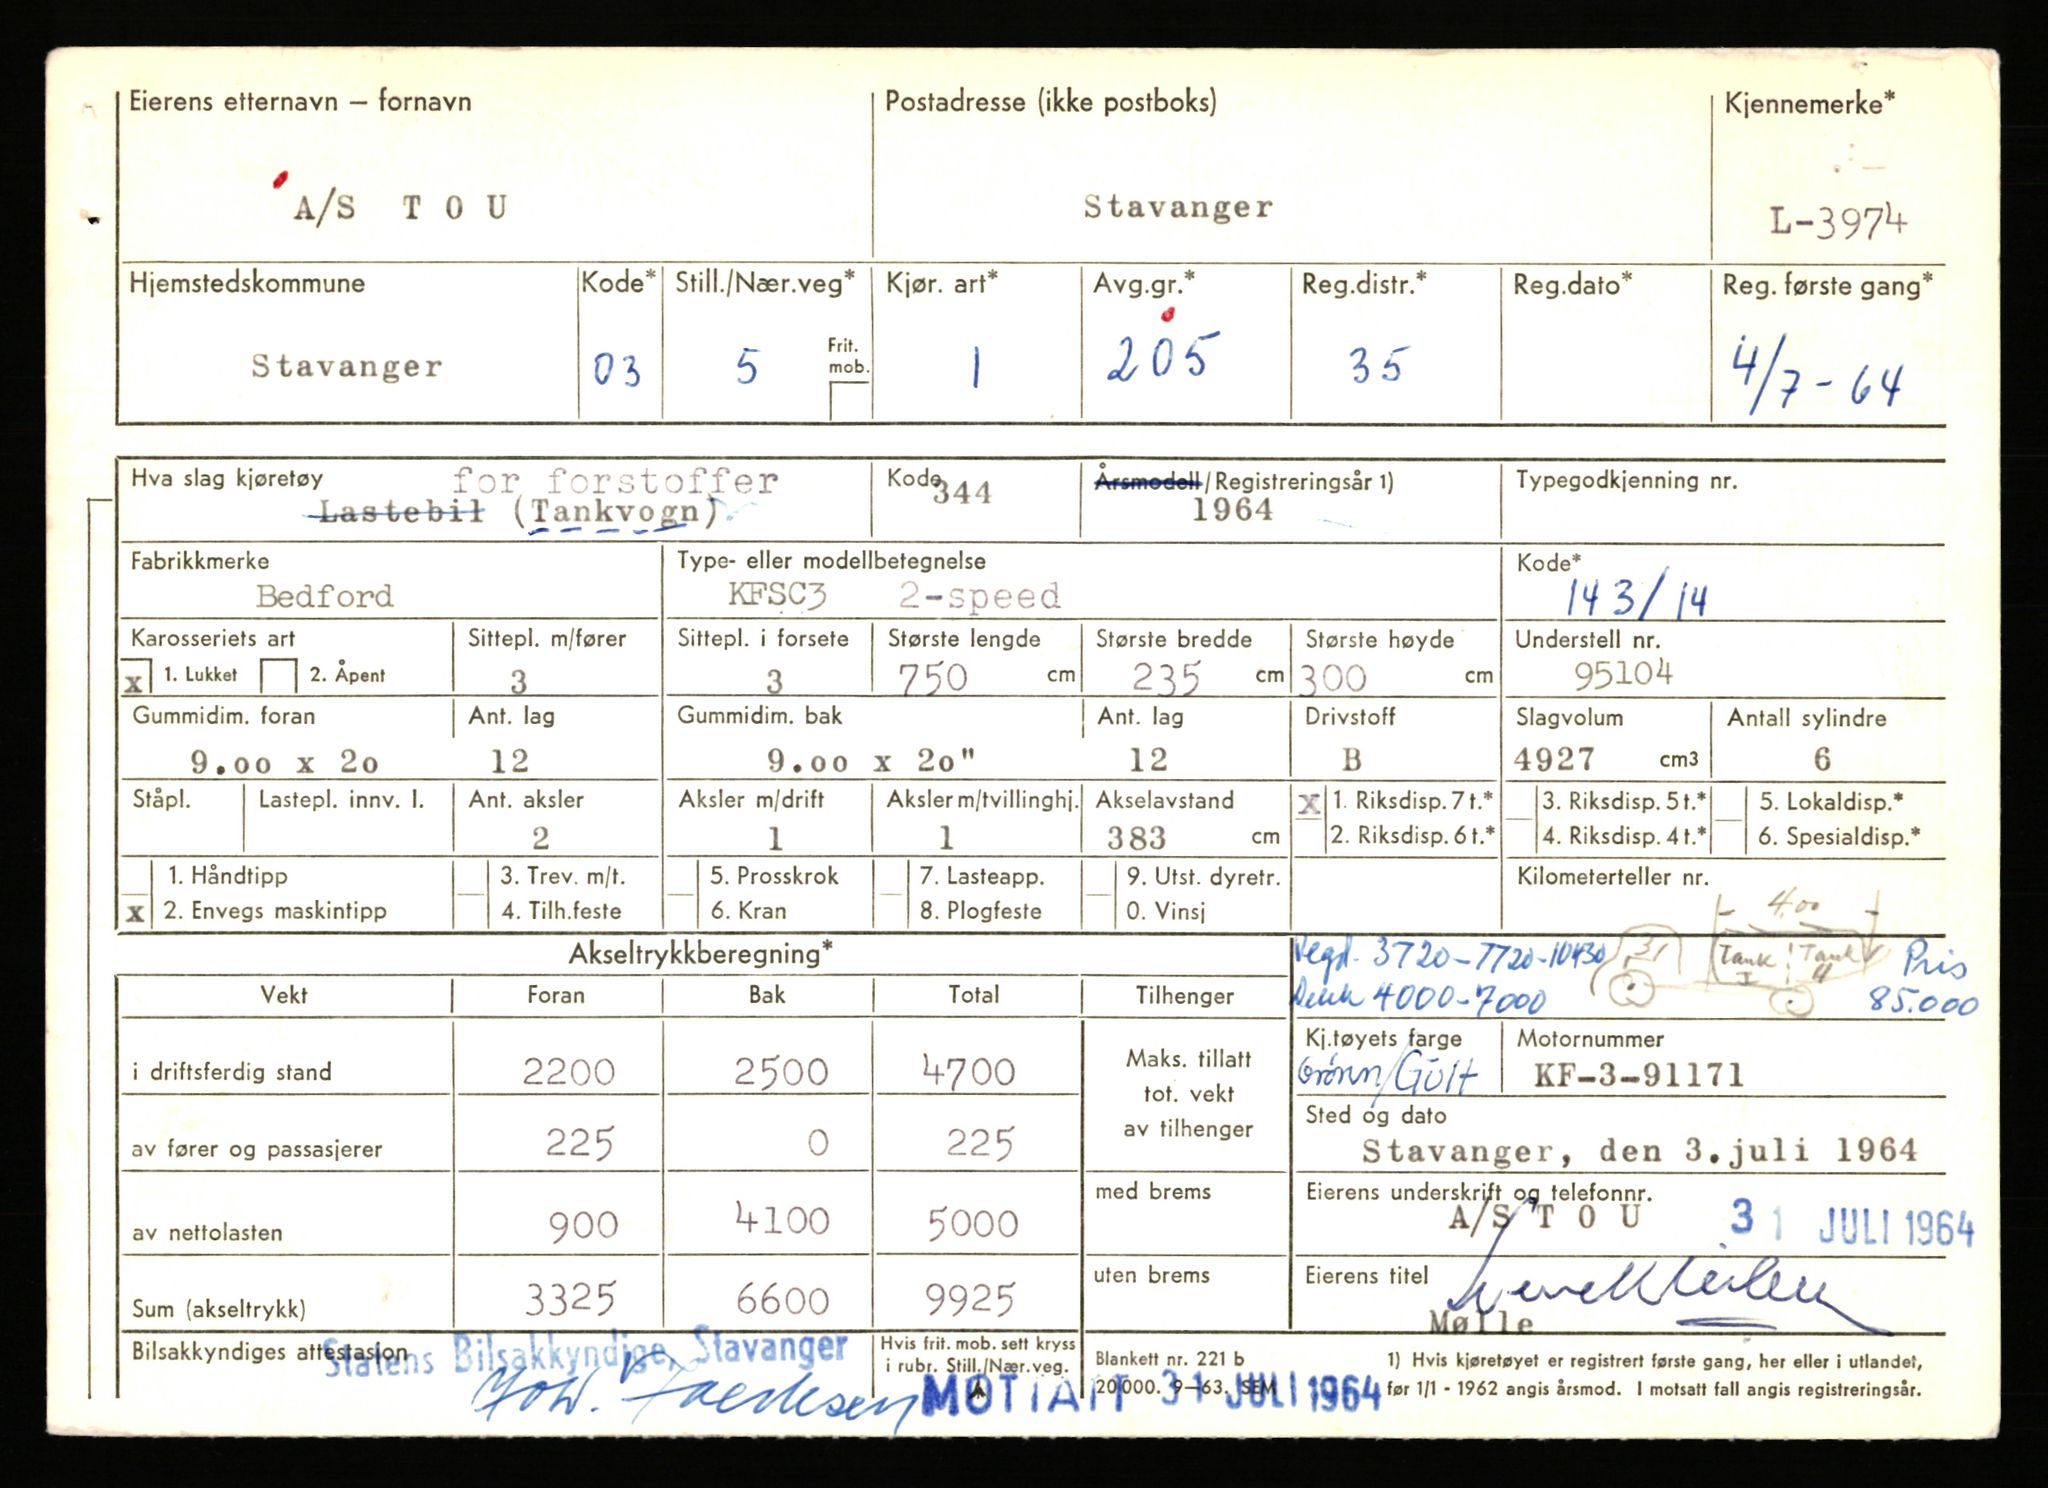 Eierens etternavn – fornavn
Postadresse (ikke postboks)
Kjennemerke*
A/S T O U
Stavanger
L-3974
Hjemstedskommune
Kode*
Still./Nær.veg*
Kjør. art*
Avg.gr.*
Reg.distr.*
Reg.dato*
Reg. første gang*
Stavanger
03
5
Frit. mob.
1
205
35
4/7-64
Hva slag kjøretøy
for forstoffer
Lastebil (Tankvogn)
Kode
344
Årsmodell/Registreringsår 1)
1964
Typegodkjenning nr.
Fabrikkmerke
Bedford
Type- eller modellbetegnelse
KFSC3 2-speed
Kode*
143/14
Karosseriets art
x 1. Lukket 2. Åpent
Sittepl. m/fører
3
Sittepl. i forsete
3
Største lengde
750 cm
Største bredde
235 cm
Største høyde
300 cm
Understell nr.
95104
Gummidim. foran
9.oo x 2o
Ant. lag
12
Gummidim. bak
9.oo x 2o"
Ant. lag
12
Drivstoff
B
Slagvolum
4927 cm3
Antall sylindre
6
Ståpl.
Lastepl. innv. l.
Ant. aksler
2
Aksler m/drift
1
Aksler m/tvillinghj.
1
Akselavstand
383 cm
x 1. Riksdisp. 7 t.*
2. Riksdisp. 6 t.*
3. Riksdisp. 5 t.*
4. Riksdisp. 4 t.*
5. Lokaldisp.*
6. Spesialdisp.*
1. Håndtipp
x 2. Envegs maskintipp
3. Trev. m/t.
4. Tilh.feste
5. Prosskrok
6. Kran
7. Lasteapp.
8. Plogfeste
9. Utst. dyretr.
0. Vinsj
Kilometerteller nr.
4.00
Akseltrykkberegning*
Vegd. 3720-7720-10430
Dekk 4000-7000
Tank I
Tank II
Pris
85.000
Vekt
Foran
Bak
Total
Tilhenger
i driftsferdig stand
2200
2500
4700
Maks. tillatt
tot. vekt
av tilhenger
Kj.tøyets farge
Grönn/Gült
Motornummer
KF-3-91171
av fører og passasjerer
225
0
225
Sted og dato
Stavanger, den 3.juli 1964
av nettolasten
900
4100
5000
med brems
Eierens underskrift og telefonnr.
A/S T O U
31 JULI 1964
Sum (akseltrykk)
3325
6600
9925
uten brems
Eierens titel
Mølle
Bilsakkyndiges attestasjon
Statens Bilsakkyndige, Stavanger
Hvis frit. mob. sett kryss
i rubr. Still./Nær.veg.
Blankett nr. 221 b
20 000. 9–63. SEM
MOTTATT 31 JULI 1964
1) Hvis kjøretøyet er registrert første gang, her eller i utlandet,
før 1/1 - 1962 angis årsmod. I motsatt fall angis registreringsår.